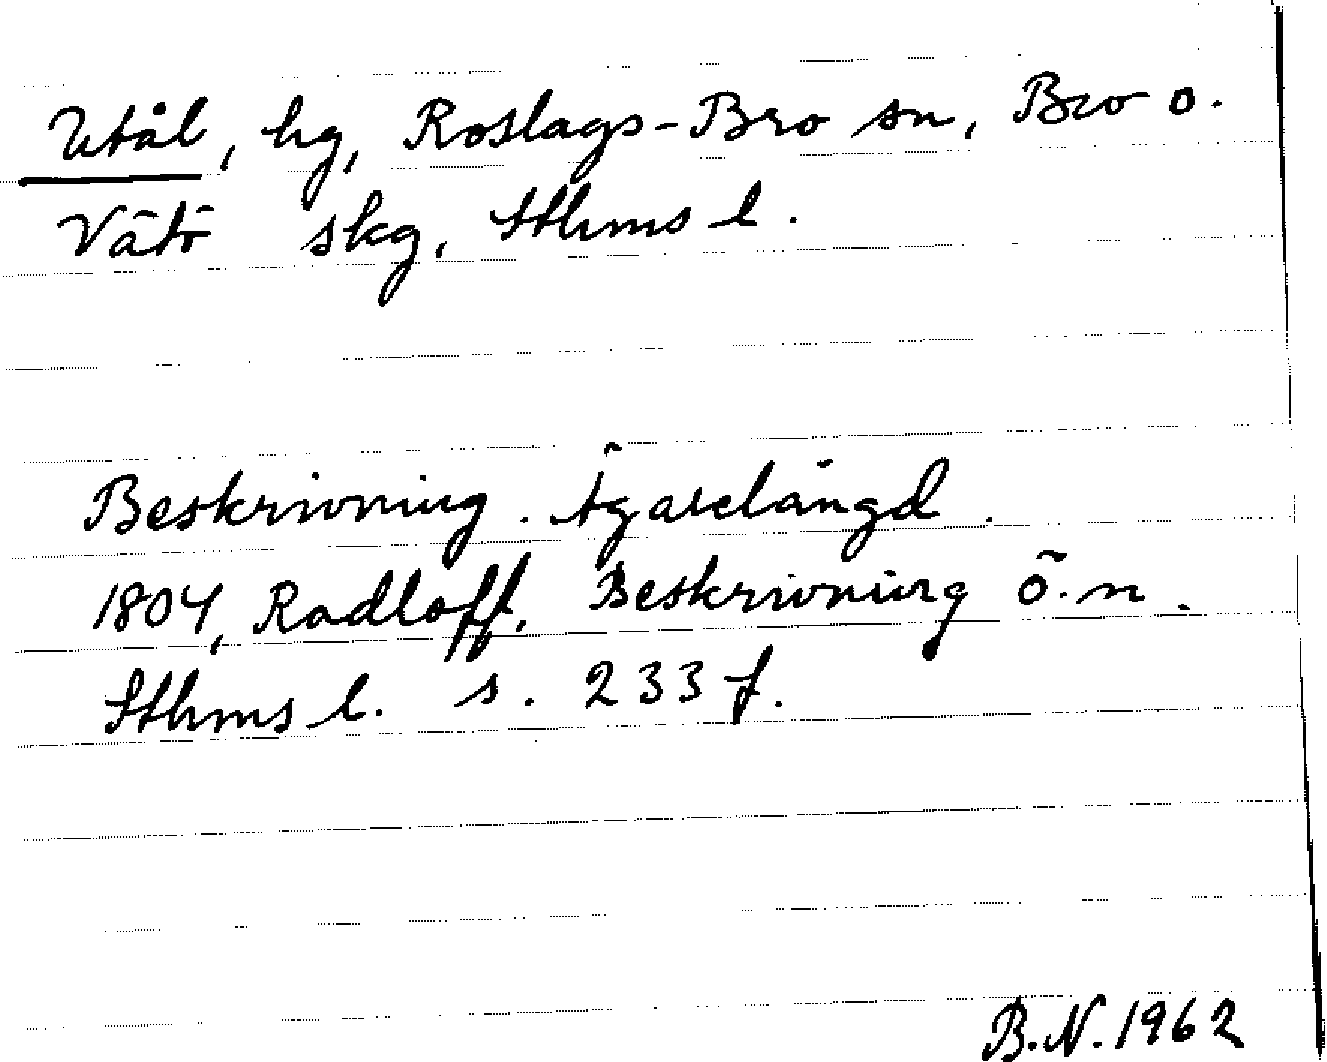 Utål, hg, Roslags-Bro sn, Bro o.
Vätö skg, Sthms l.
Beskrivning. Ägarelängd.
1804, Radloff, Beskrivning ö. n.
Sthms l. s. 233 f.
B.N. 1962